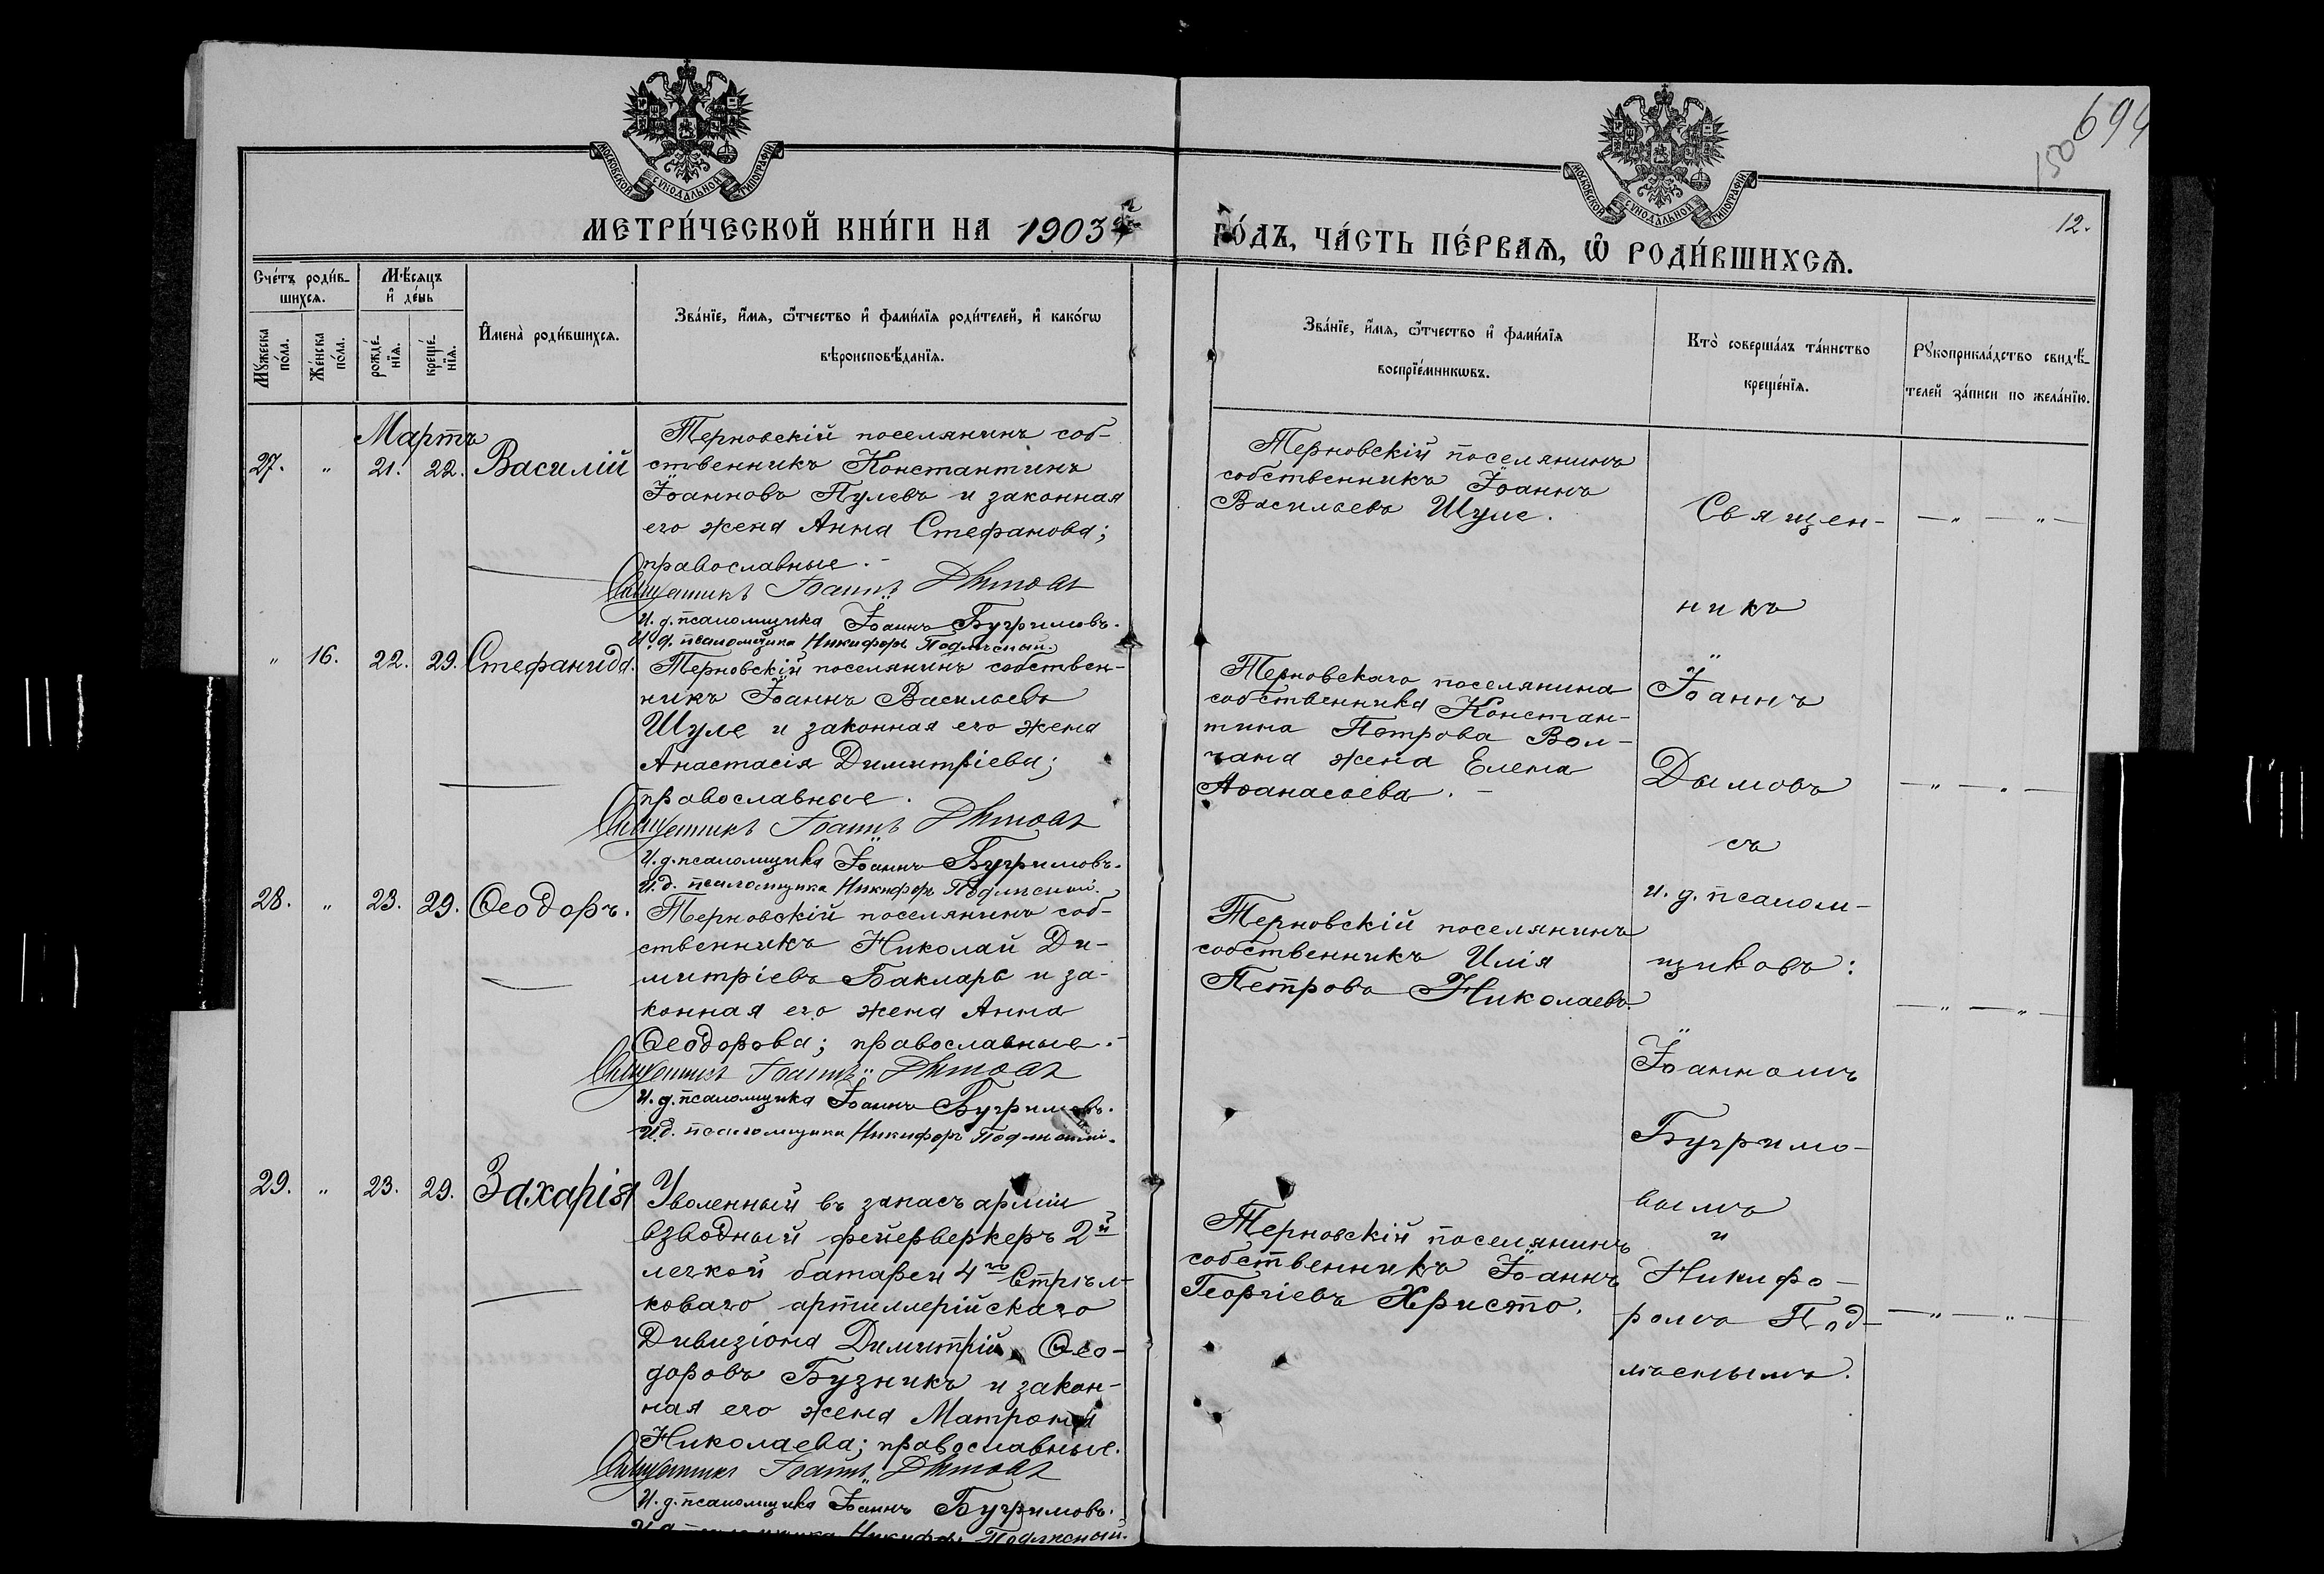 694
150
МОСКОВСКОЙ СИНОДАЛЬНОЙ ТИПОГРАФІИ
МОСКОВСКОЙ СИНОДАЛЬНОЙ ТИПОГРАФІИ
12.
МЕТРИ́ЧЕСКОЙ КНИ́ГИ НА 1903
ГО́ДЪ, ЧА́СТЬ ПЕ́РВАѦ, Ѡ҆ РОДИ́ВШИХСѦ.
Сче́тъ роди́в-
шихсѧ.
Мѣ́сѧцъ
и҆ де́нь
Мꙋ́жеска
по́ла.
Же́нска
по́ла.
рожде́-
нїѧ.
креще́-
нїѧ.
И҆мена̀ роди́вшихсѧ.
Зва́нїе, и҆́мѧ, ѻ҆́тчество и҆ фами́лїѧ роди́телей, и҆ како́гѡ
вѣроисповѣ́данїѧ.
Зва́нїе, и҆́мѧ, ѻ҆́тчество и҆ фами́лїѧ
воспрїе́мникѡвъ.
Кто̀ соверша́лъ та́инство
креще́нїѧ.
Рꙋкоприкла́дство свидѣ́-
телей за́писи по жела́нїю.
Мартъ
27. " 21. 22. Василій
Терновскій поселянинъ соб-
ственникъ Константинъ
Іоанновъ Пулевъ и законная
его жена Анна Стефанова;
православные.
Священникъ Іоаннъ Дымовъ
И. д. псаломщика Іоаннъ Бугримовъ.
И. д. псаломщика Никифоръ Подлѣсный.
Терновскій поселянинъ
собственникъ Іоаннъ
Васильевъ Шуле.
" 16. 22. 29. Стефанида.
Терновскій поселянинъ собствен-
никъ Іоаннъ Васильевъ
Шуле и законная его жена
Анастасія Димитріева;
православные.
Священникъ Іоаннъ Дымовъ
И. д. псаломщика Іоаннъ Бугримовъ.
И. д. псаломщика Никифоръ Подлѣсный.
Терновскаго поселянина
собственника Констан-
тина Петрова Вол-
чана жена Елена
Аѳанасьева. -
28. " 23. 29. Ѳеодоръ.
Терновскій поселянинъ соб-
ственникъ Николай Ди-
митріевъ Бакларъ и за-
конная его жена Анна
Ѳеодорова; православные.
Священникъ Іоаннъ Дымовъ
И. д. псаломщика Іоаннъ Бугримовъ.
И. д. псаломщика Никифоръ Подлѣсный.
Терновскій поселянинъ
собственникъ Илія
Петровъ Николаевъ.
29. " 23. 29. Захарія
Уволенный въ запасъ арміи
взводный фейерверкеръ 2й
легкой батареи 4го Стрѣл-
коваго артиллерійскаго
Дивизіона Димитрій Ѳео-
доровъ Бузникъ и закон-
ная его жена Матрона
Николаева; православные.
Священникъ Іоаннъ Дымовъ
И. д. псаломщика Іоаннъ Бугримовъ.
И. д. псаломщика Никифоръ Подлѣсный.
Терновскій поселянинъ
собственникъ Іоаннъ
Георгіевъ Христо.
Священ-
никъ
Іоаннъ
Дымовъ
съ
и. д. псалом-
щиковъ:
Іоанномъ
Бугримо-
вымъ
и
Никифо-
ромъ Под-
лѣснымъ.